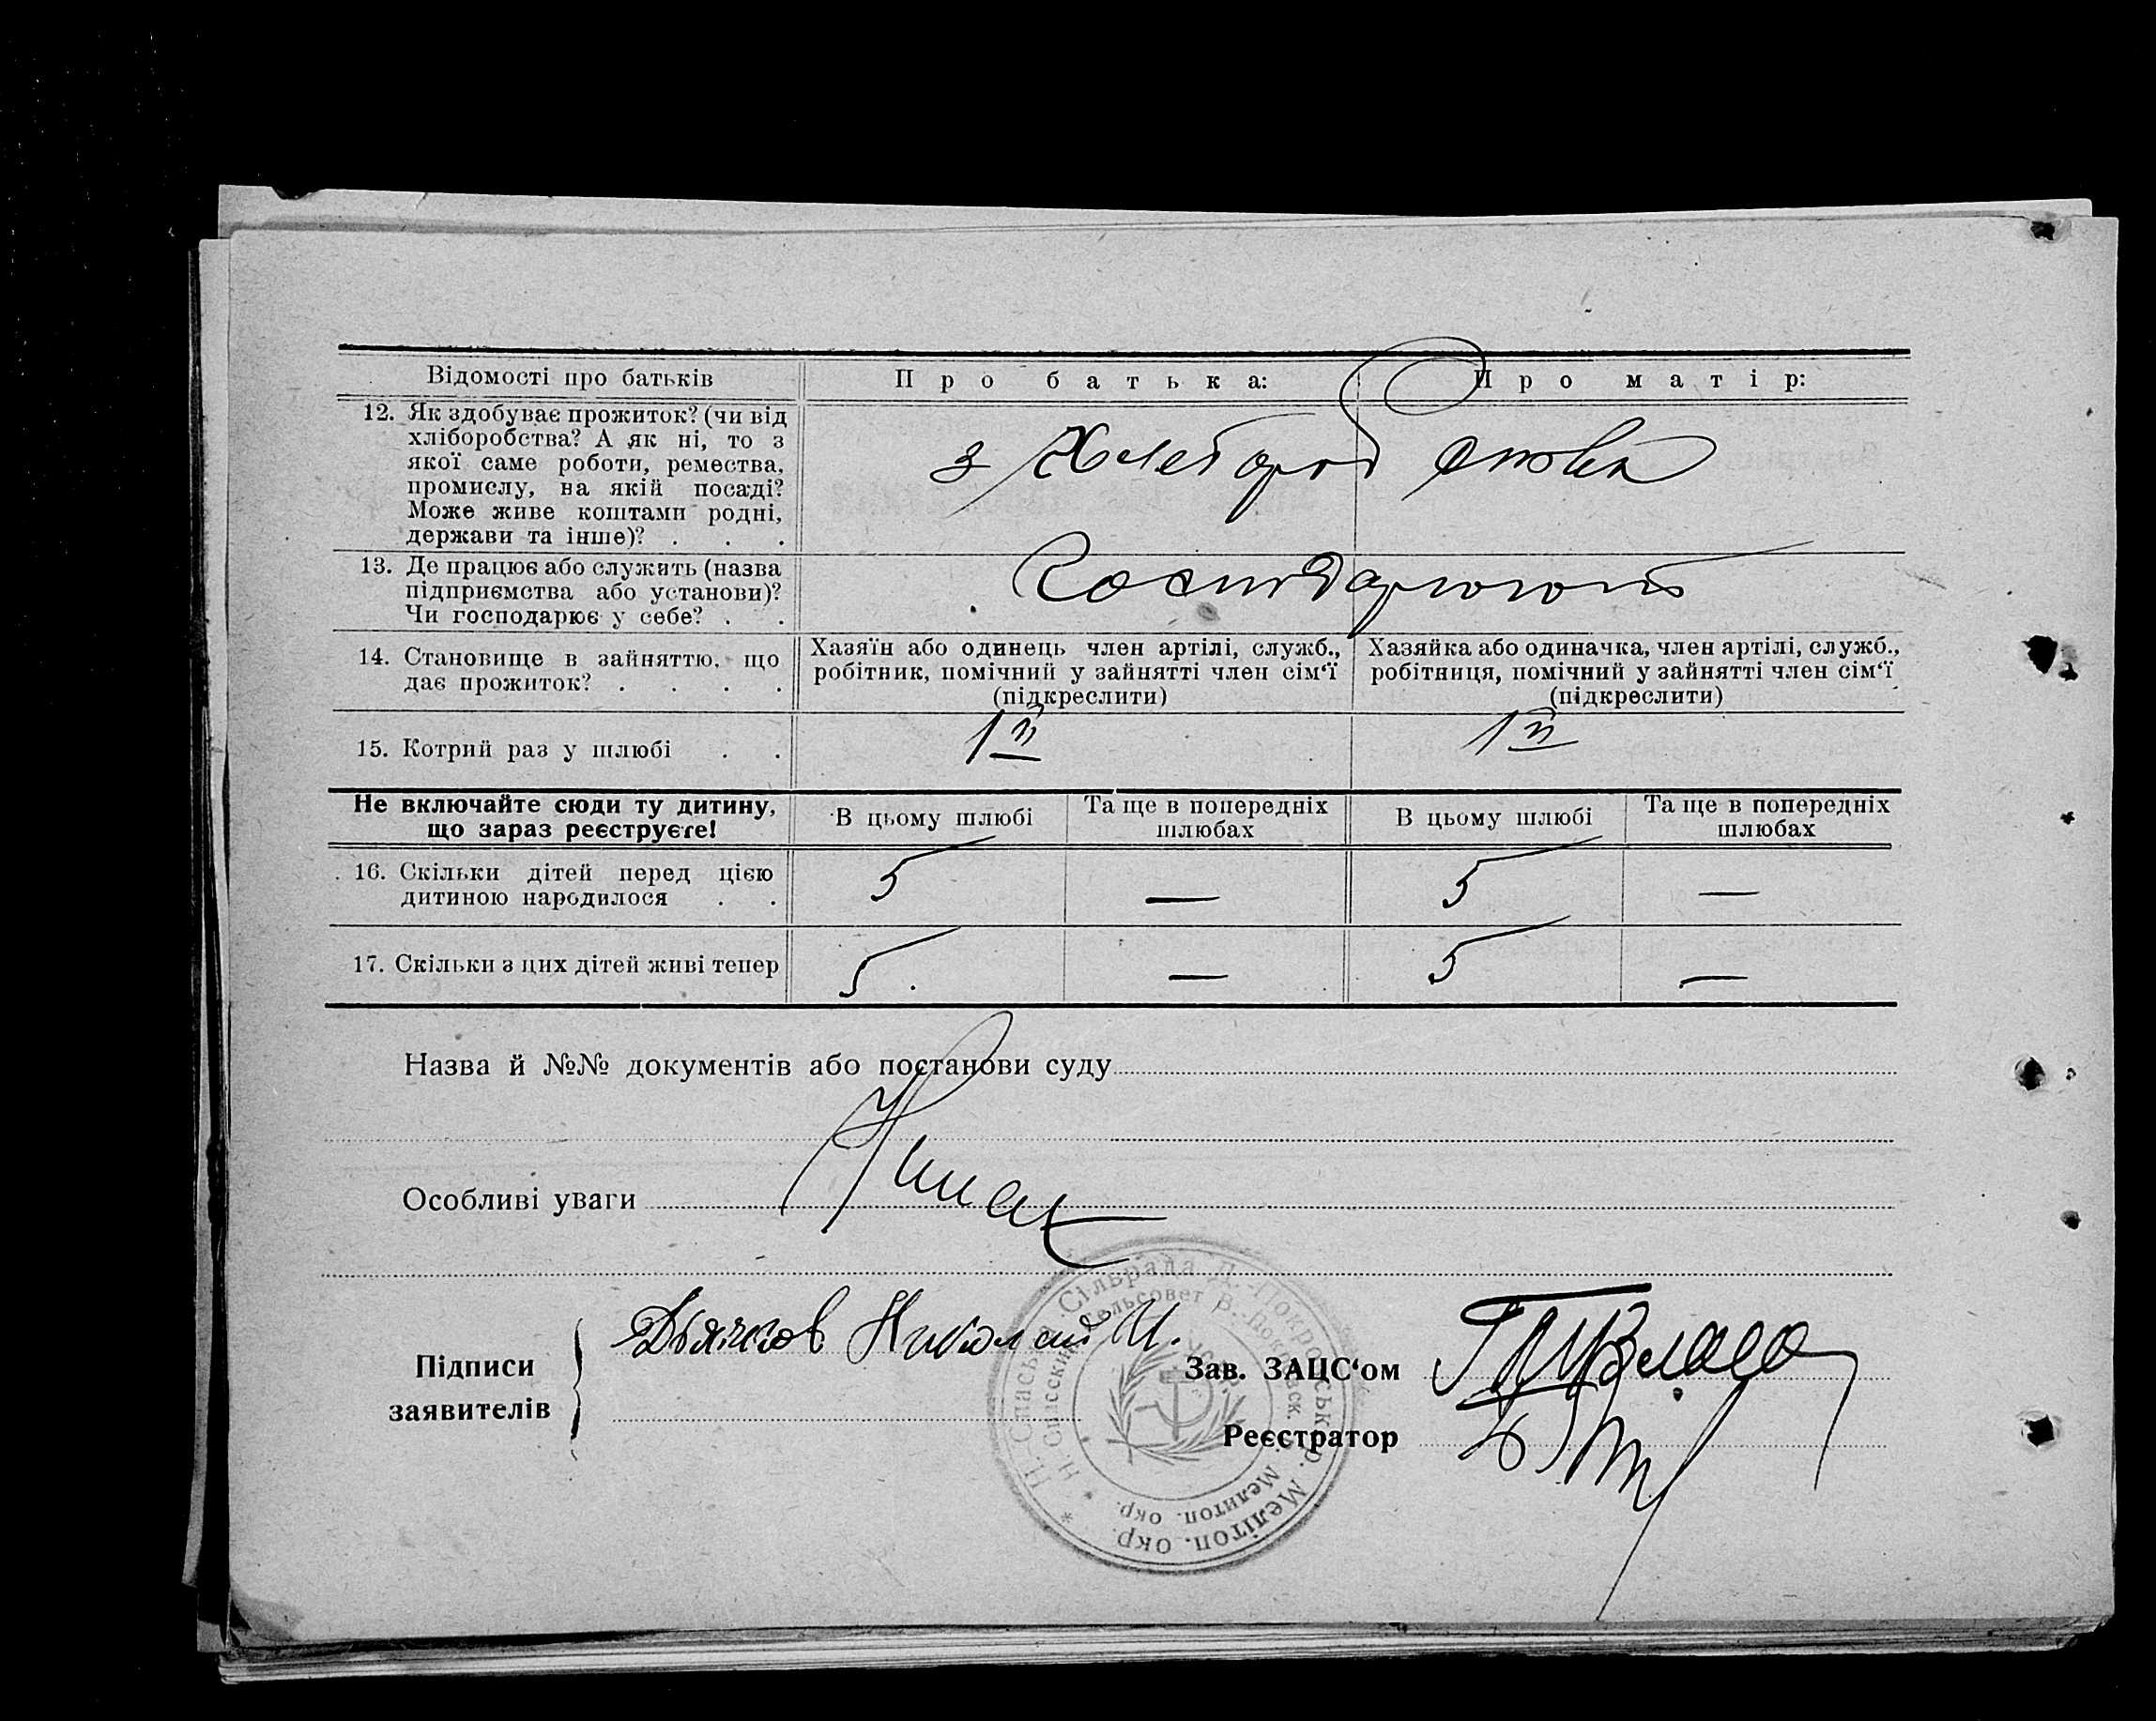 Відомості про батьків
Про батька:
Про матір:
12. Як здобуває прожиток? (чи від
хліборобства? А як ні, то з
якої саме роботи, ремества,
промислу, на якій посаді?
Може живе коштами родні,
держави та інше)? . . .
з Хлеборобства
13. Де працює або служить (назва
підприємства або установи)?
Чи господарює у себе? . .
Господарюют
14. Становище в зайняттю, що
дає прожиток? . . . .
Хазяїн або одинець член артілі, служб.,
робітник, помічний у зайнятті член сім‘ї
(підкреслити)
Хазяйка або одиначка, член артілі, служб.,
робітниця, помічний у зайнятті член сім‘ї
(підкреслити)
15. Котрий раз у шлюбі . .
1й
1й
Не включайте сюди ту дитину,
що зараз реєструєте!
В цьому шлюбі
Та ще в попередніх
шлюбах
В цьому шлюбі
Та ще в попередніх
шлюбах
16. Скільки дітей перед цією
дитиною народилося . .
5 — 5 —
17. Скільки з цих дітей живі тепер
5. — 5 —
Назва й №№ документів або постанови суду
Особливі уваги
Підписи
заявителів
Дьячков Николай И.
Зав. ЗАЦС‘ом
Реєстратор
Н.-Спаська Сільрада Д.-Покровськ. р. Мелітоп. окр.
Н.-Спасский Сельсовет В.-Покровск. р. Мелитоп. окр.